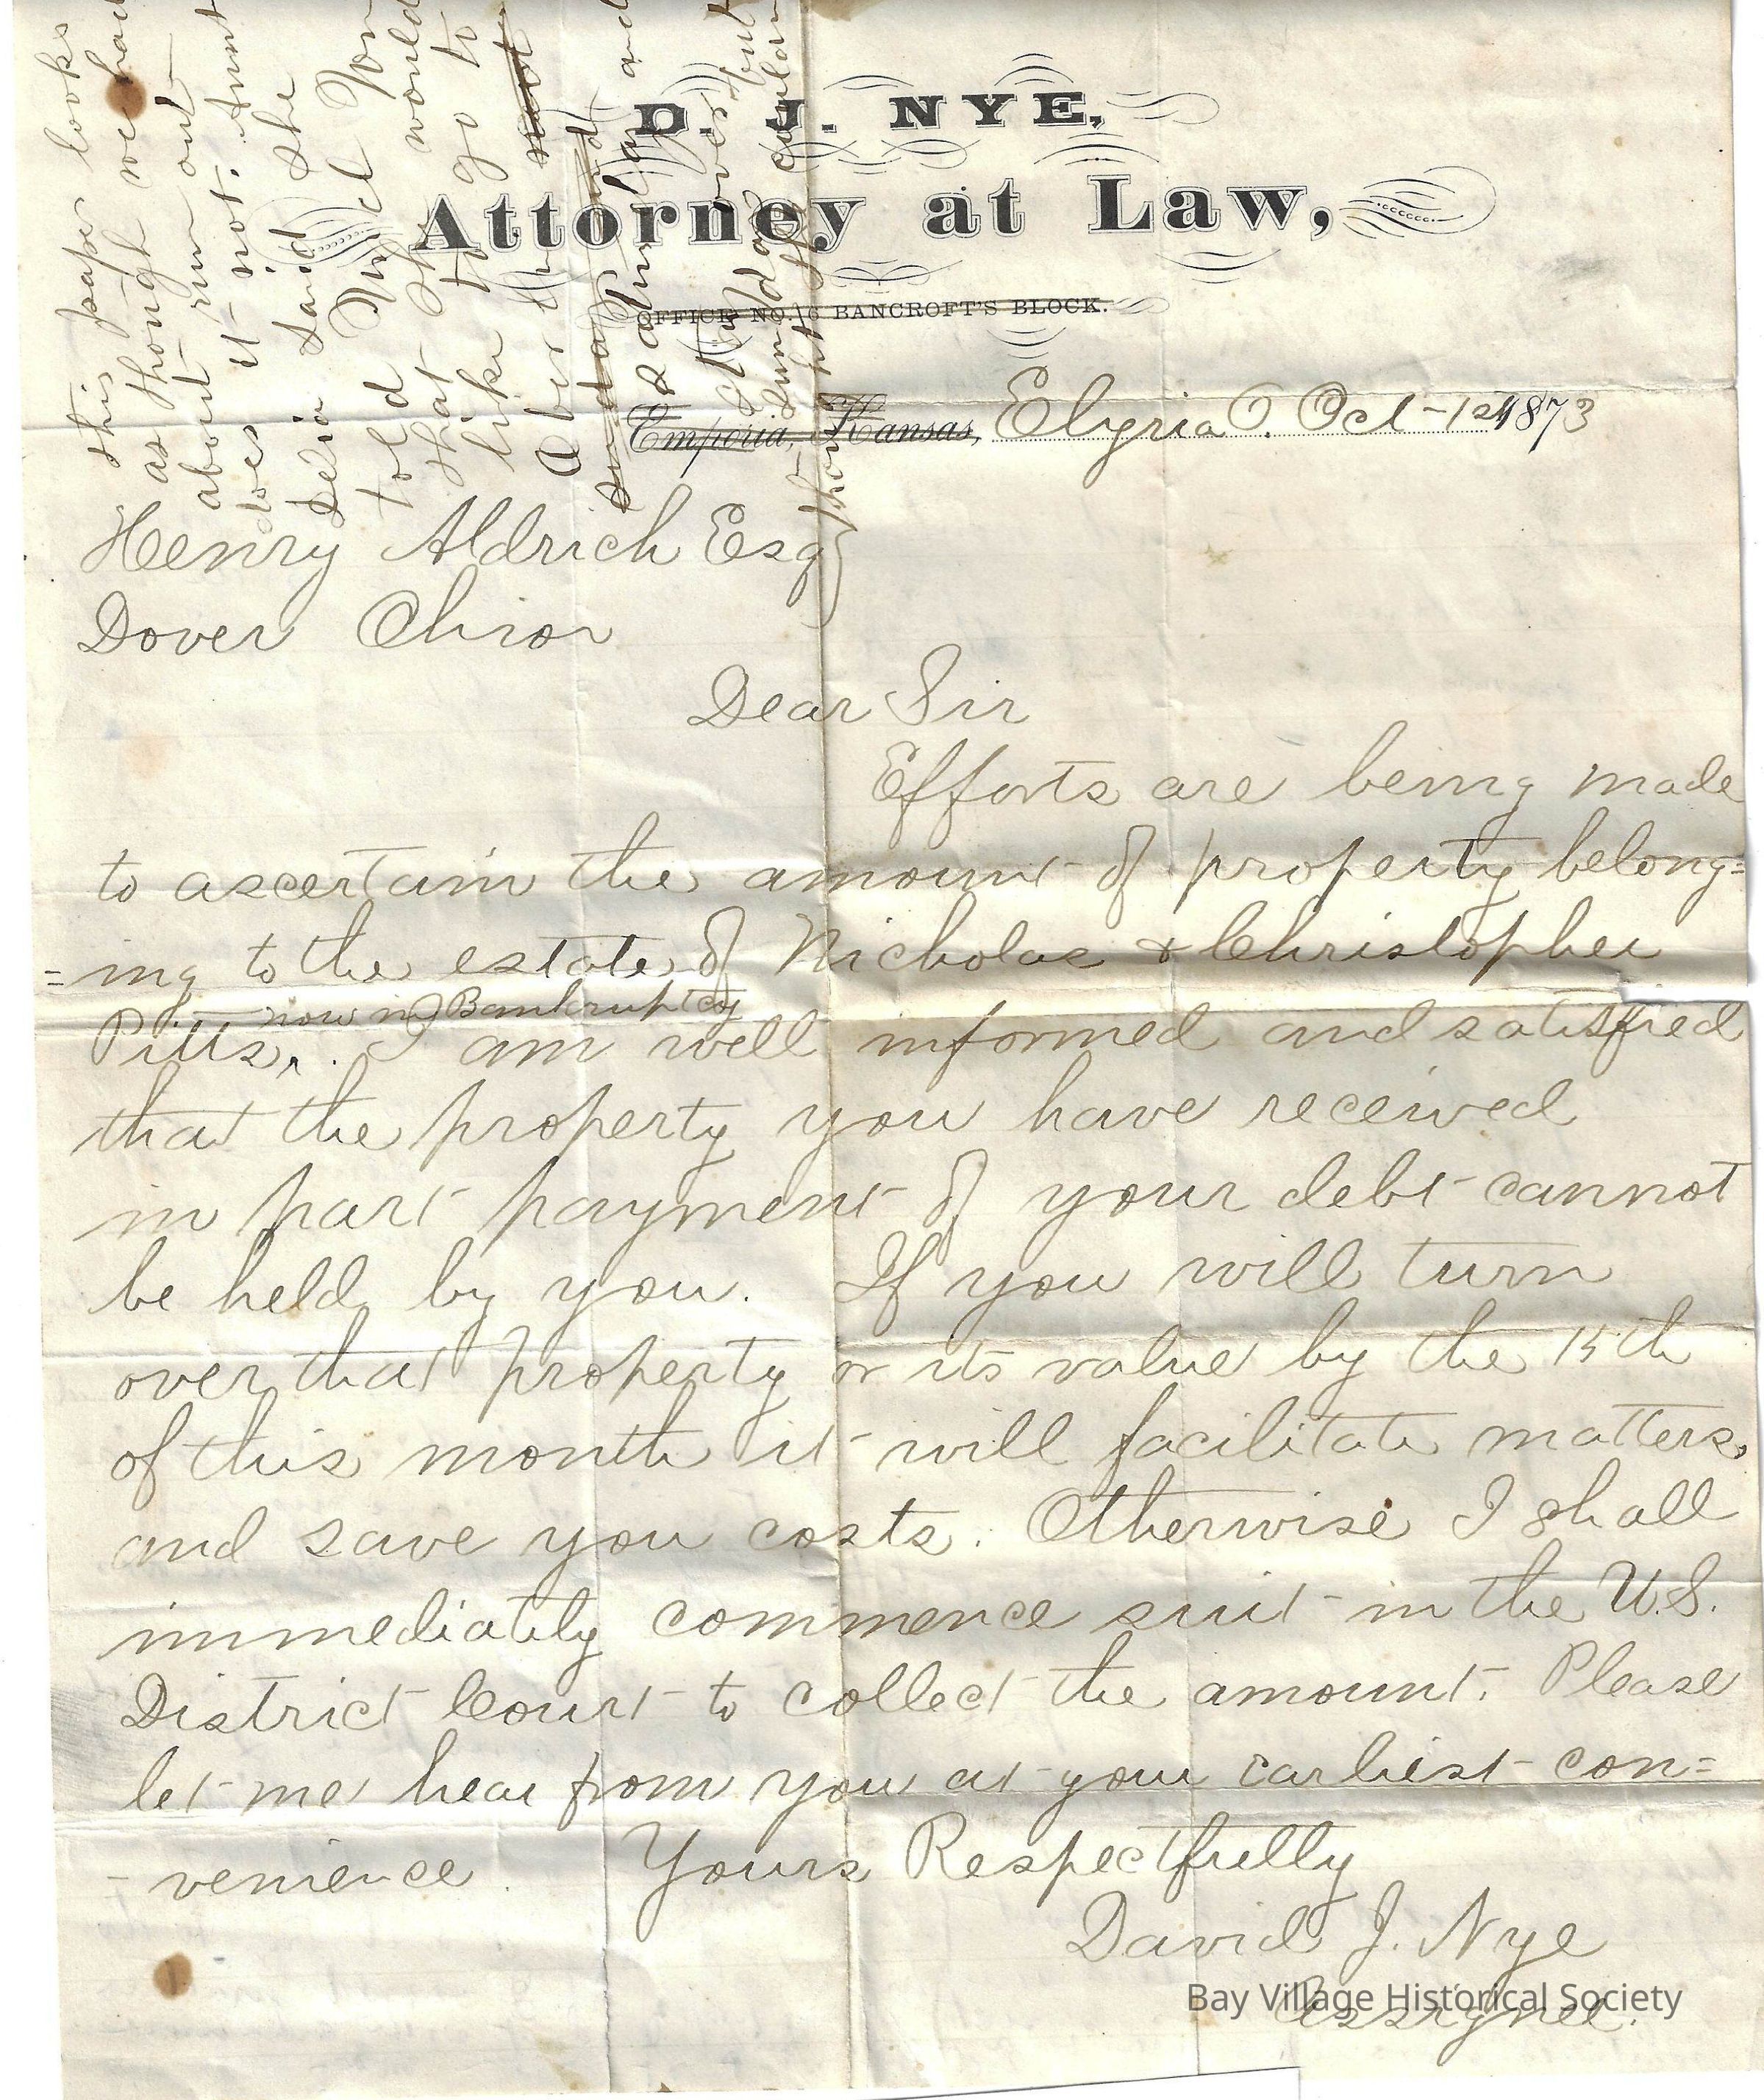 D. J. NYE,
Attorney at Law,
OFFICE NO. 6 BANCROFT'S BLOCK.
Emporia, Kansas, Elyria O. Oct 1st 1873
this paper looks
as though we had
about run out
does it not. Aunt
Delia said she
told Uncle
that she would
like to go to
Henry Aldrich Esq
Dover Ohio
Dear Sir
Efforts are being made
to ascertain the amount of property belong=
=ing to the estate of Nicholas & Christopher
now in Bankruptcy
Pitts. I am well informed and satisfied
that the property you have received
in part payment of your debt cannot
be held by you. If you will turn
over that property or its value by the 15th
of this month it will facilitate matters,
and save you costs. Otherwise I shall
immediately commence suit in the U.S.
District Court to collect the amount. Please
let me hear from you at your earliest con=
=venience. Yours Respectfully
David J. Nye
Assignee.
Bay Village Historical Society